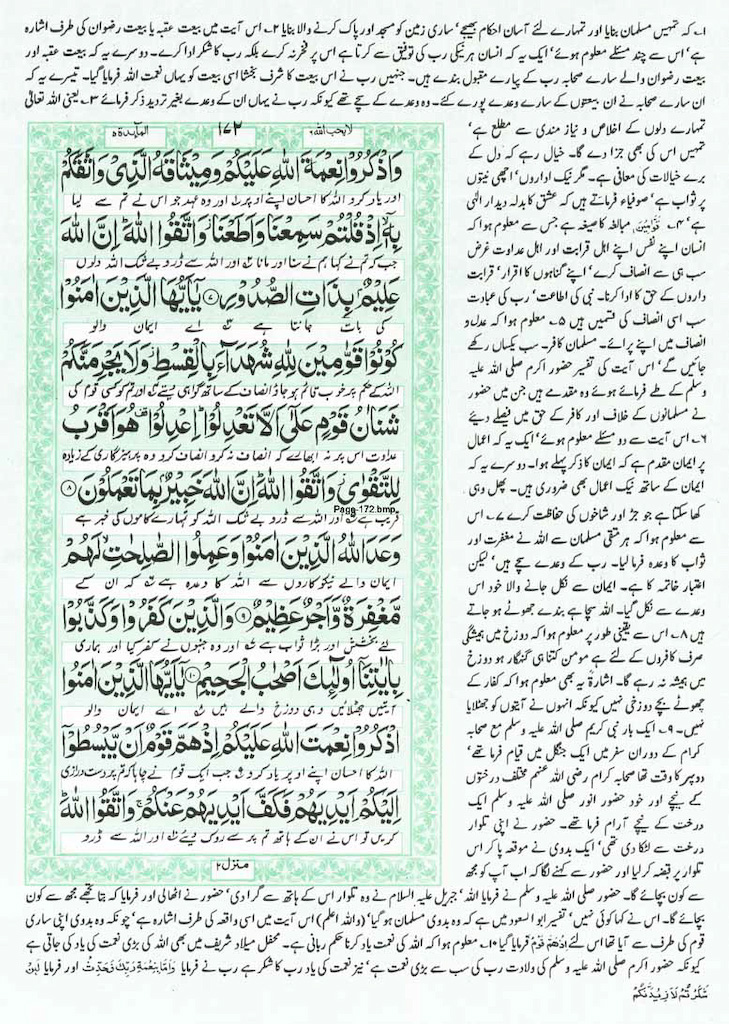 ۱۔ کہ تمہیں مسلمان بنایا اور تمہارے لئے آسان احکام بھیجے' ساری زمین کو مسجد اور پاک کرنے والا بنایا ۲۔ اس آیت میں بیعت عقبہ یا بیعت رضوان کی طرف اشارہ
ہے' اس سے چند مسئلے معلوم ہوئے' ایک یہ کہ انسان ہر نیکی رب کی توفیق سے کرتا ہے اس پر فخر نہ کرے بلکہ رب کا شکر ادا کرے۔ دوسرے یہ کہ بیعت عقبہ اور
بیعت رضوان والے سارے صحابہ رب کے پیارے مقبول بندے ہیں۔ جنہیں رب نے اس بیعت کا شرف بخشا اسی بیعت کو یہاں نعمت اللہ فرمایا گیا۔ تیسرے یہ کہ
ان سارے صحابہ نے ان بیعتوں کے سارے وعدے پورے کئے۔ وہ وعدے کے سچے تھے کیونکہ رب نے یہاں ان کے وعدے بغیر تردید ذکر فرمائے ۳۔ یعنی اللہ تعالیٰ
تمہارے دلوں کے اخلاص و نیاز مندی سے مطلع ہے'
تمہیں اس کی بھی جزا دے گا۔ خیال رہے کہ دل کے
برے خیالات کی معافی ہے۔ مگر نیک ارادوں' اچھی نیتوں
پر ثواب ہے' صوفیاء فرماتے ہیں کہ عشق کا بدلہ دیدار الٰہی
ہے' ۴۔ قوّامین مبالغہ کا صیغہ ہے جس سے معلوم ہوا کہ
انسان اپنے نفس اپنے اہل قرابت اور اہل عداوت غرض
سب ہی سے انصاف کرے' اپنے گناہوں کا اقرار' قرابت
داروں کے حق کا ادا کرنا۔ نبی کی اطاعت' رب کی عبادت
سب اسی انصاف کی قسمیں ہیں ۵۔ معلوم ہوا کہ عدل و
انصاف میں اپنے پرائے۔ مسلمان کافر۔ سب یکساں رکھے
جائیں گے' اس آیت کی تفسیر حضور اکرم صلی اللہ علیہ
وسلم کے طے فرمائے ہوئے وہ مقدمے ہیں جن میں حضور
نے مسلمانوں کے خلاف اور کافر کے حق میں فیصلے دیئے
۶۔ اس آیت سے دو مسئلے معلوم ہوئے' ایک یہ کہ اعمال
پر ایمان مقدم ہے کہ ایمان کا ذکر پہلے ہوا۔ دوسرے یہ کہ
ایمان کے ساتھ نیک اعمال بھی ضروری ہیں۔ پھل وہی
کھا سکتا ہے جو جڑ اور شاخوں کی حفاظت کرے ۷۔ اس
سے معلوم ہوا کہ ہر متقی مسلمان سے اللہ نے مغفرت اور
ثواب کا وعدہ فرما لیا۔ رب کے وعدے سچے ہیں' لیکن
اعتبار خاتمہ کا ہے۔ ایمان سے نکل جانے والا خود اس
وعدے سے نکل گیا۔ اللہ سچا ہے بندے جھوٹے ہو جاتے
ہیں ۸۔ اس سے یقینی طور پر معلوم ہوا کہ دوزخ میں ہمیشگی
صرف کافروں کے لئے ہے مومن کتنا ہی گنہگار ہو دوزخ
میں ہمیشہ نہ رہے گا۔ اشارۃ یہ بھی معلوم ہوا کہ کفار کے
چھوٹے بچے دوزخی نہیں کیونکہ انہوں نے آیتوں کو جھٹلایا
نہیں۔ ۹۔ ایک بار نبی کریم صلی اللہ علیہ وسلم مع صحابہ
کرام کے دوران سفر میں ایک جنگل میں قیام فرما تھے'
دوپہر کا وقت تھا صحابہ کرام رضی اللہ عنہم مختلف درختوں
کے نیچے اور خود حضور انور صلی اللہ علیہ وسلم ایک
درخت کے نیچے آرام فرما تھے۔ حضور نے اپنی تلوار
درخت سے لٹکا دی تھی' ایک بدوی نے موقعہ پا کر اس
تلوار پر قبضہ کر لیا اور حضور سے کہنے لگا کہ اب آپ کو مجھ
لا یحب اللہ ۶ ۱۷۲ المآئدۃ ۵
وَاذْكُرُوْا نِعْمَةَ اللّٰهِ عَلَيْكُمْ وَمِيْثَاقَهُ الَّذِيْ وَاثَقَكُمْ
اور یاد کرو اللہ کا احسان اپنے اوپر ۱ اور وہ عہد جو اس نے تم سے لیا
بِهٖٓ اِذْ قُلْتُمْ سَمِعْنَا وَاَطَعْنَا وَاتَّقُوا اللّٰهَ اِنَّ اللّٰهَ
جب کہ تم نے کہا ہم نے سنا اور مانا ۲ اور اللہ سے ڈرو بے شک اللہ دلوں
عَلِيْمٌۢ بِذَاتِ الصُّدُوْرِ ۷ يٰٓاَيُّهَا الَّذِيْنَ اٰمَنُوْا
کی بات جانتا ہے ۳ اے ایمان والو
كُوْنُوْا قَوّٰمِيْنَ لِلّٰهِ شُهَدَآءَ بِالْقِسْطِ وَلَا يَجْرِمَنَّكُمْ
اللہ کے حکم پر خوب قائم ہو جاؤ انصاف کے ساتھ گواہی دیتے ۴ اور تم کو کسی قوم کی
شَنَاٰنُ قَوْمٍ عَلٰٓى اَلَّا تَعْدِلُوْا اِعْدِلُوْا هُوَ اَقْرَبُ
عداوت اس پر نہ ابھارے کہ انصاف نہ کرو انصاف کرو وہ پرہیزگاری کے زیادہ
لِلتَّقْوٰى وَاتَّقُوا اللّٰهَ اِنَّ اللّٰهَ خَبِيْرٌۢ بِمَا تَعْمَلُوْنَ ۸
Page-172.bmp
قریب ہے ۵ اور اللہ سے ڈرو بے شک اللہ کو تمہارے کاموں کی خبر ہے
وَعَدَ اللّٰهُ الَّذِيْنَ اٰمَنُوْا وَعَمِلُوا الصّٰلِحٰتِ لَهُمْ
ایمان والے نیکوکاروں سے اللہ کا وعدہ ہے ۶ کہ ان کے
مَّغْفِرَةٌ وَّاَجْرٌ عَظِيْمٌ ۹ وَالَّذِيْنَ كَفَرُوْا وَكَذَّبُوْا
لئے بخشش اور بڑا ثواب ہے ۷ اور وہ جنہوں نے کفر کیا اور ہماری
بِاٰيٰتِنَآ اُولٰٓئِكَ اَصْحٰبُ الْجَحِيْمِ ۱۰ يٰٓاَيُّهَا الَّذِيْنَ اٰمَنُوا
آیتیں جھٹلائیں وہی دوزخ والے ہیں ۸ اے ایمان والو
اذْكُرُوْا نِعْمَتَ اللّٰهِ عَلَيْكُمْ اِذْ هَمَّ قَوْمٌ اَنْ يَّبْسُطُوْٓا
اللہ کا احسان اپنے اوپر یاد کرو ۹ جب ایک قوم نے چاہا کہ تم پر دست درازی
اِلَيْكُمْ اَيْدِيَهُمْ فَكَفَّ اَيْدِيَهُمْ عَنْكُمْ وَاتَّقُوا اللّٰهَ
کریں تو اس نے ان کے ہاتھ تم پر سے روک دیئے ۱۰ اور اللہ سے ڈرو
منزل ۲
سے کون بچائے گا۔ حضور صلی اللہ علیہ وسلم نے فرمایا اللہ' جبریل علیہ السلام نے وہ تلوار اس کے ہاتھ سے گرا دی' حضور نے اٹھالی اور فرمایا کہ بتا تجھے مجھ سے کون
بچائے گا۔ اس نے کہا کوئی نہیں' تفسیر ابو السعود میں ہے کہ وہ بدوی مسلمان ہو گیا' (واللہ اعلم) اس آیت میں اسی واقعہ کی طرف اشارہ ہے' چونکہ وہ بدوی اپنی ساری
قوم کی طرف سے آیا تھا اس لئے اِذْ هَمَّ قَوْمٌ فرمایا گیا ۱۰۔ معلوم ہوا کہ اللہ کی نعمت یاد کرنا حکم ربانی ہے۔ محفل میلاد شریف میں بھی اللہ کی بڑی نعمت کی یاد کی جاتی ہے
کیونکہ حضور اکرم صلی اللہ علیہ وسلم کی ولادت رب کی سب سے بڑی نعمت ہے' نیز نعمت کی یاد رب کا شکر ہے رب نے فرمایا وَاَمَّا بِنِعْمَةِ رَبِّكَ فَحَدِّثْ اور فرمایا لَئِنْ
شَكَرْتُمْ لَاَزِيْدَنَّكُمْ